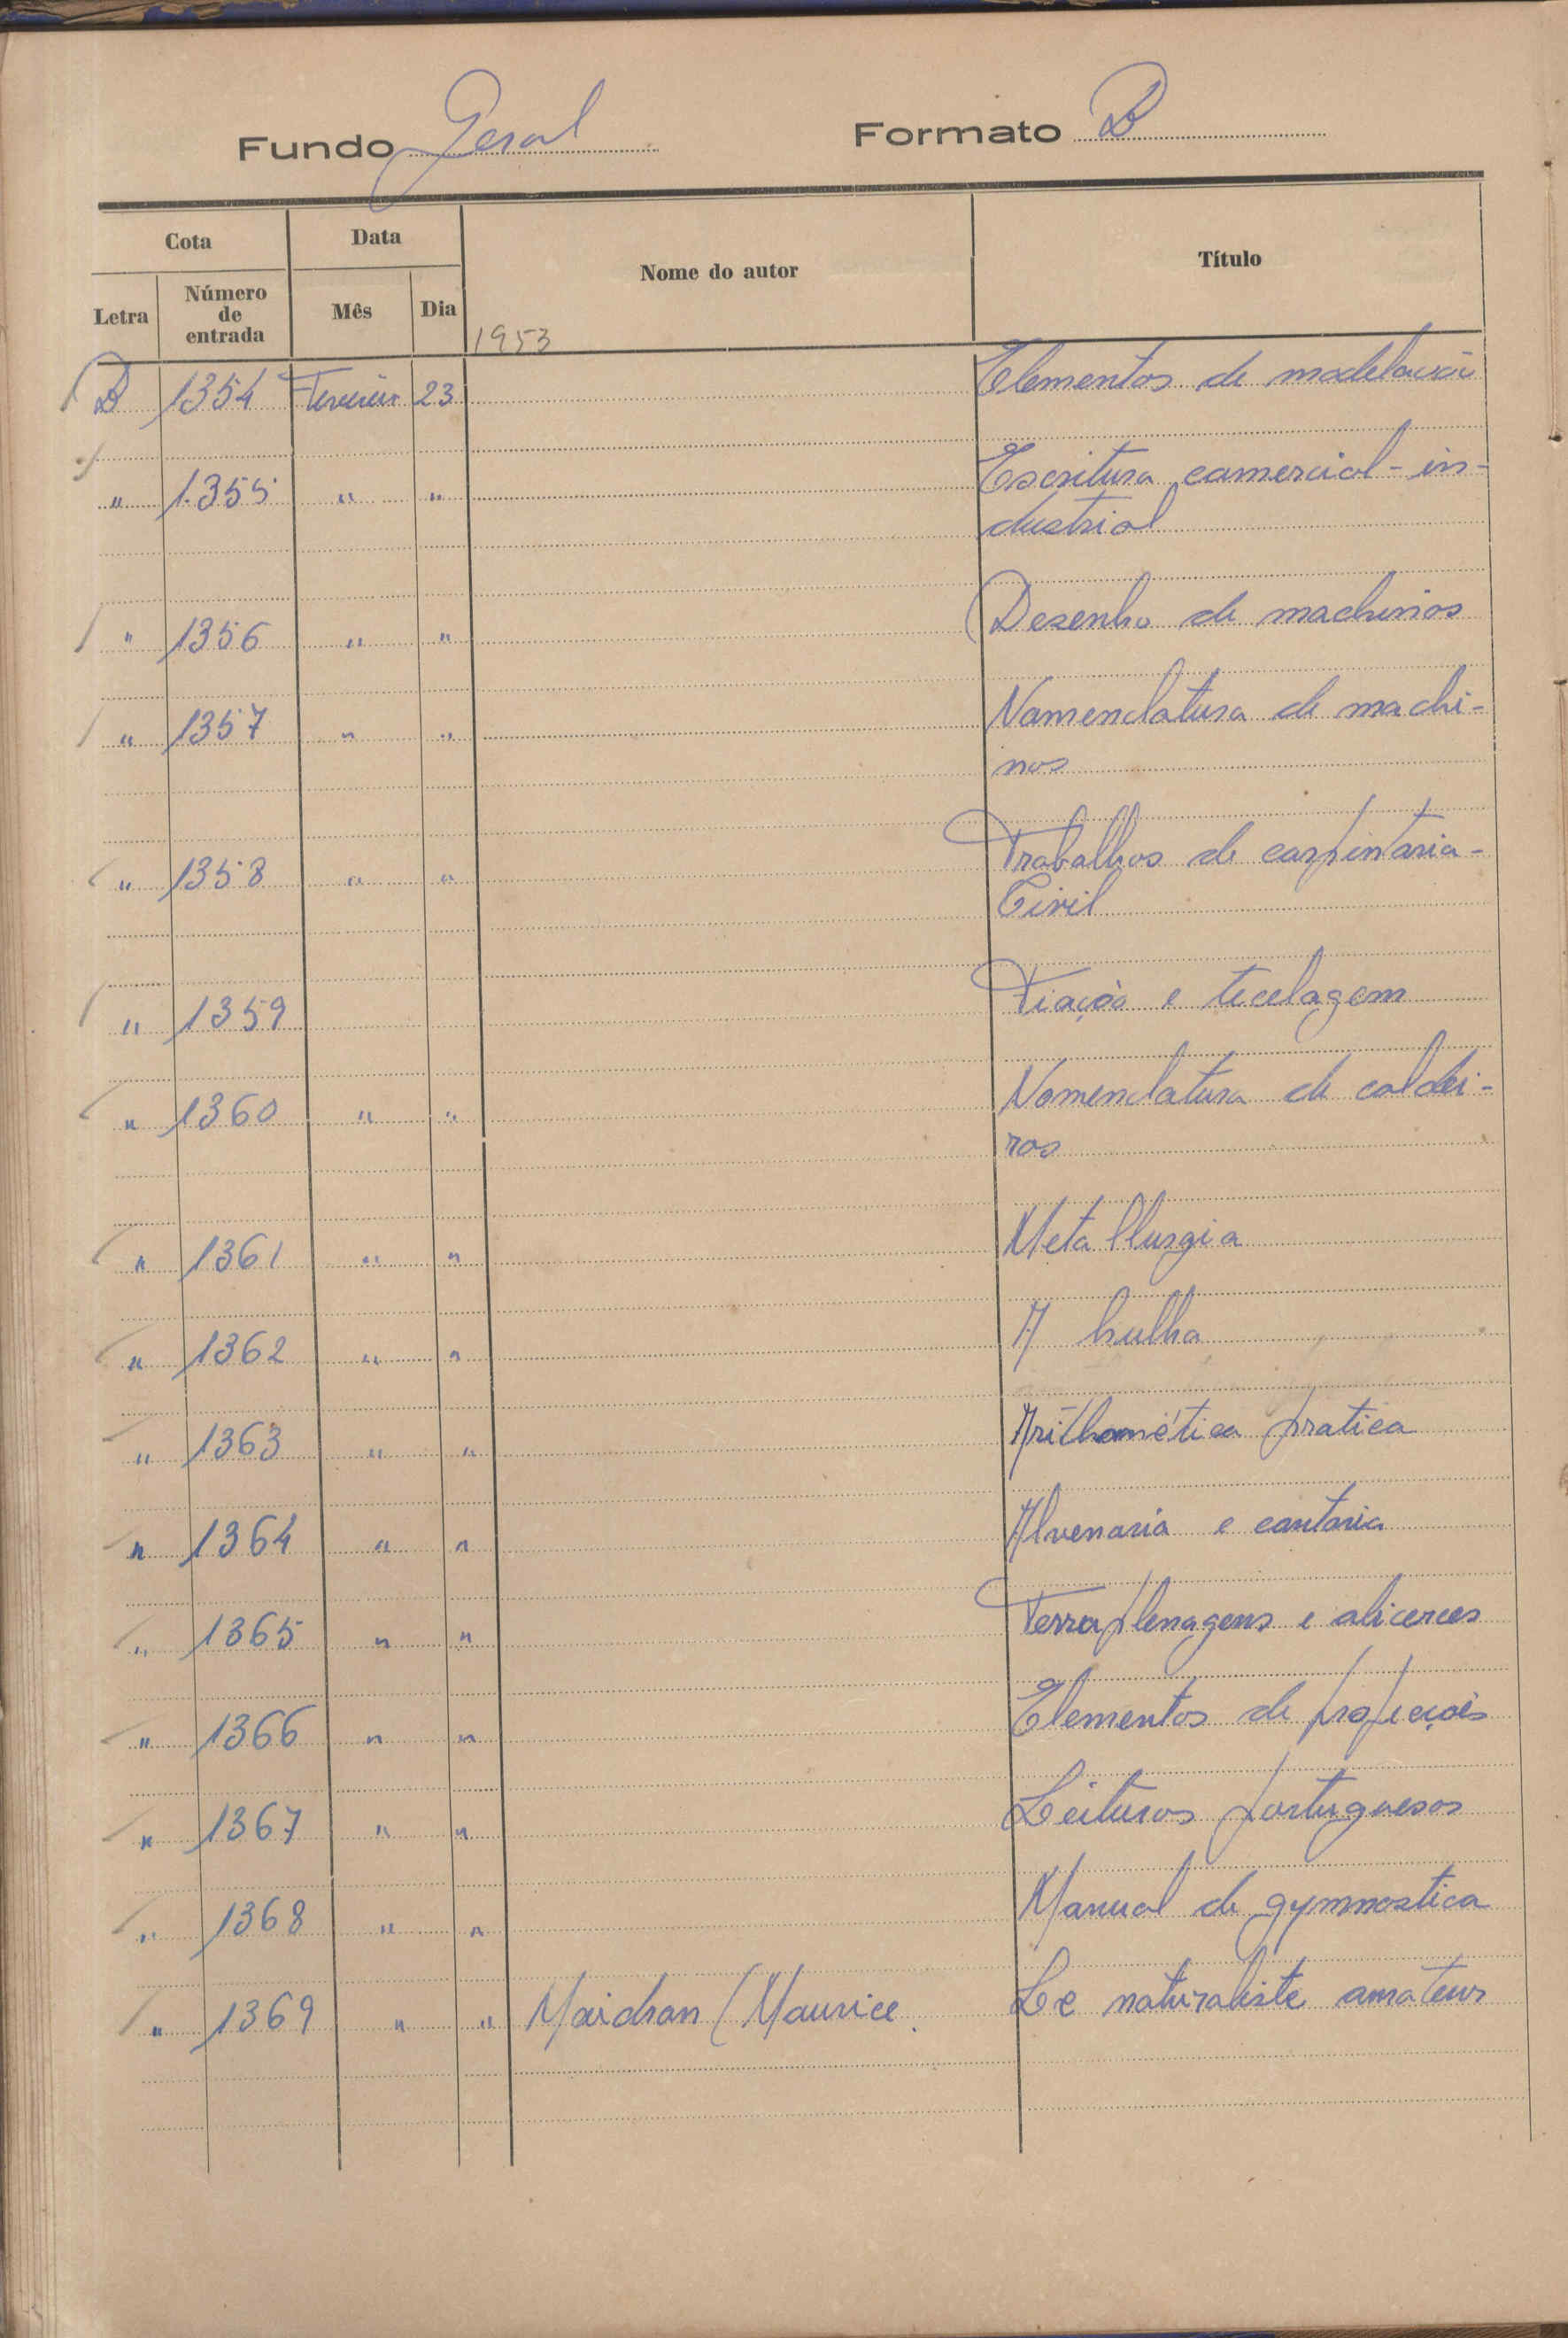 Fundo Geral Formato B
Cota Data Nome do autor Título
Letra Número de entrada Mês Dia
1953
B 1354 Fevereiro 23 Elementos de modelação
" 1355 " " Escritura comercial-in-
dustrial
" 1356 " " Desenho de machinas
" 1357 " " Nomenclatura de machi-
nas
" 1358 " " Trabalhos de carpintaria-
Civil
" 1359 Fiação e tecelagem
" 1360 " " Nomenclatura de caldei-
ras
" 1361 " " Metallurgia
" 1362 " " A hulha
" 1363 " " Arithmética pratica
" 1364 " " Alvenaria e cantaria
" 1365 " " Terraplenagens e alicerces
" 1366 " " Elementos de projecções
" 1367 " " Leituras portuguesas
" 1368 " " Manual de gymnastica
" 1369 " " (Maurice. Le naturaliste amateur